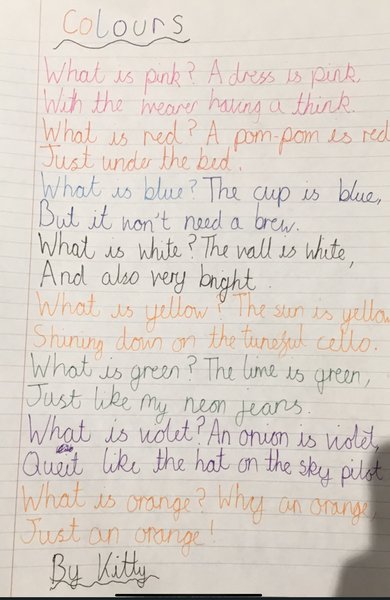 Colours
What is pink? A dress is pink,
With the wearer having a think.
What is red? A pom-pom is red
Just under the bed.
What is blue? The cup is blue,
But it won't need a brew.
What is white? The wall is white,
And also very bright.
What is yellow? The sun is yellow
Shining down on the tuneful cello.
What is green? The lime is green,
Just like my neon jeans.
What is violet? An onion is violet,
Queit like the hat on the sky pilot
What is orange? Why an orange,
Just an orange!
By Kitty